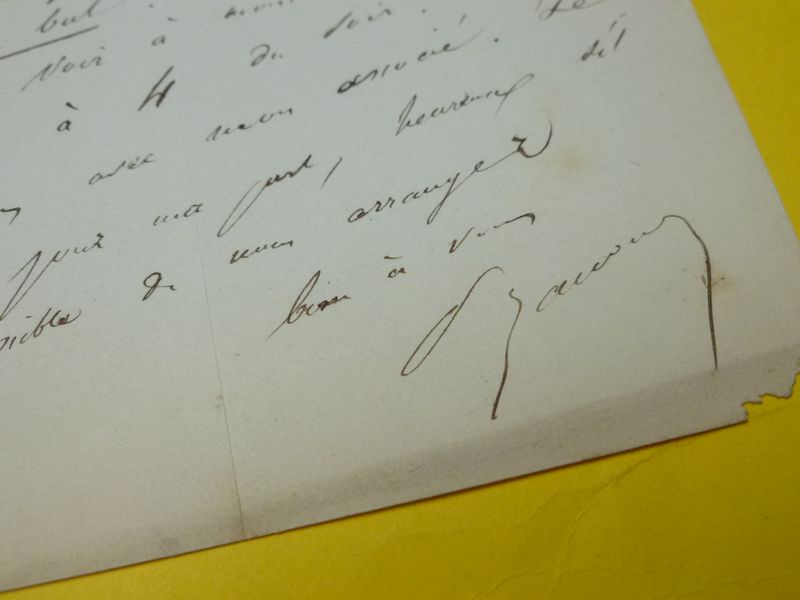 but.
voir à
à 4 du soir.
avec mon associé. Le
pour ma part, heureux s'il
sible de nous arranger
bien à vous